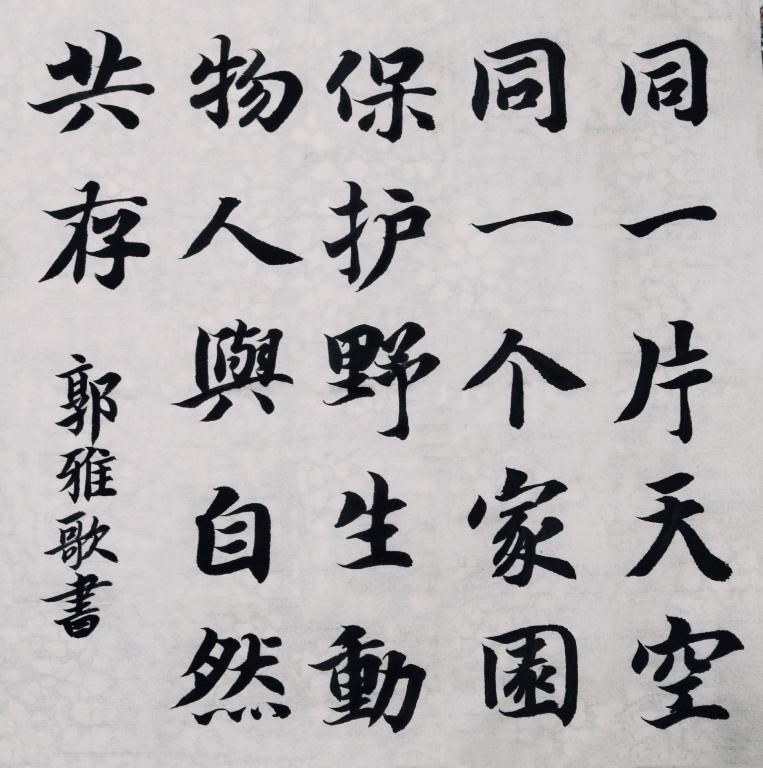 同一片天空
同一个家園
保护野生動
物人與自然
共存
郭雅歌書